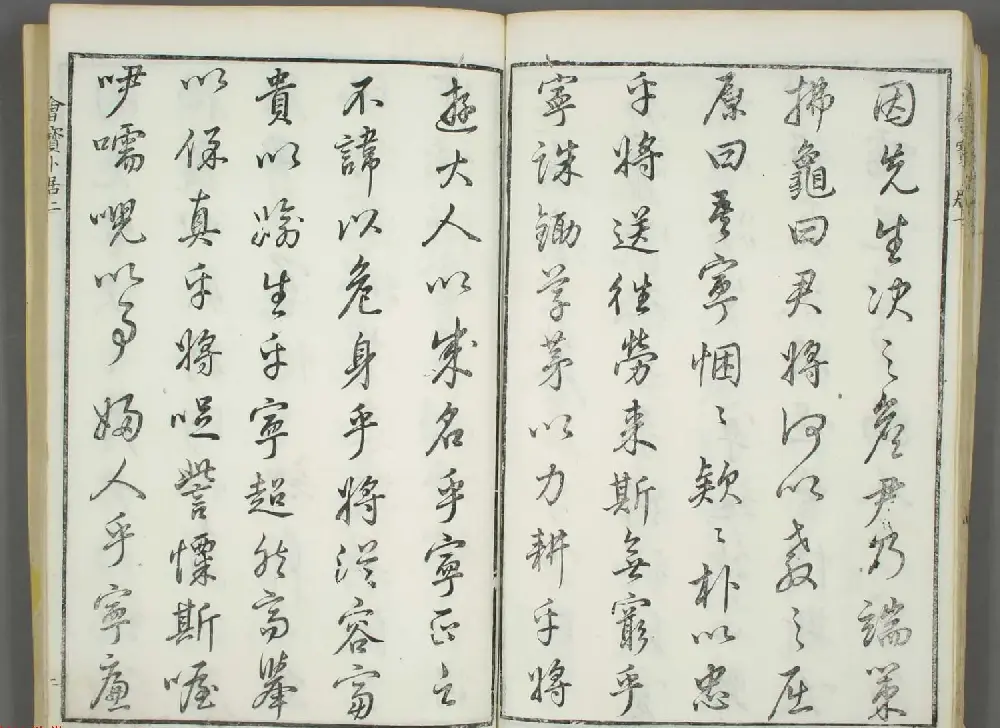 因先生决之詹尹乃端策
拂龜曰君將何以教之屈
原曰吾寧悃〻款〻朴以忠
乎將送往勞来斯無窮乎
寧誅鋤草茅以力耕乎將
遊大人以成名乎寧正言
不諱以危身乎將從容富
貴以踰生乎寧超然高舉
以保真乎將哫訾慄斯喔
咿嚅唲以事婦人乎寧廉
會寶卜居二